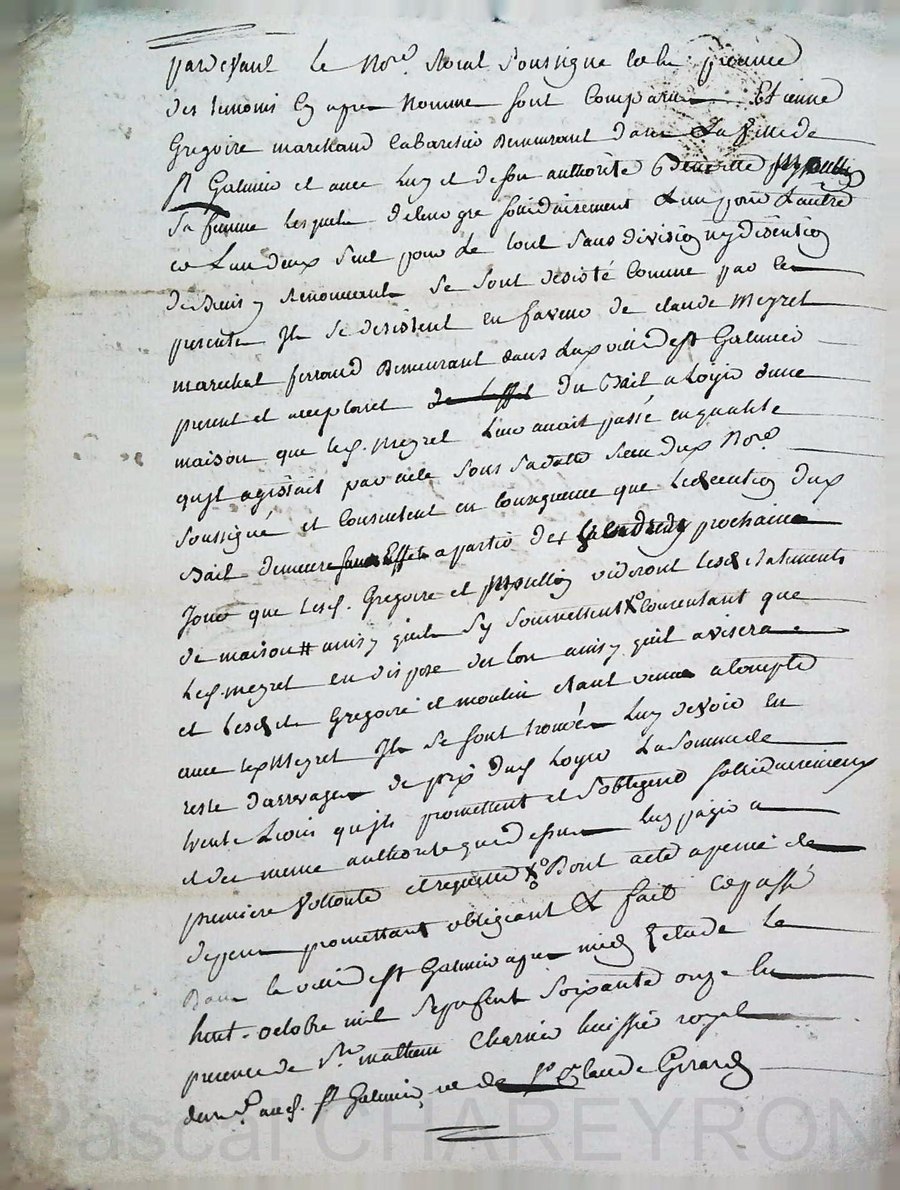 pardevant le Nore Roial soussigne en presence
des temoins cy apres nommes sont comparus Etienne
Gregoire marchand Cabaretier Demeurant dans la ville de
st Galmier et avec luy et de son authorité Benoitte
sa femme lesquels de leur gre solidairement l'un pour l'autre
et l'un deux seul pour le tout sans division ny
de biens y Renonceants se sont desisté comme par ces
presentes Ils se desistent en faveur de claude Meyret
marechal ferrand Demeurant dans lad ville de st Galmier
present et acceptant du Bail a loyer dune
maison que led. meyret leur avoit passé en qualite
qu'jl agissait par acte sous sa datte Receu dud Nore
soussigné et consentent en consequence que lexecution dud
Bail demeure sans Effet a partir de prochaine
Jour que lesd. Gregoire et moullin videront lesd batiments
de maison # ainsy quils sy soummettent consentant que
led. meyret en dispose des lors ainsy quil avisera
et lesdits Gregoire et moulin etant venus a compte
avec led Meyret Ils se sont trouvés luy devoir en
reste darrerages de prix dud loyer la somme de
trente Livres qu'jls promettent et sobligent sollidairement
et de meme authorite que dessus luy payer a
premiere vollonte et requisition Dont acte a peine de
depens promettant obligeant & fait et passé
Dans la ville de st Galmier apres midy Etude le
huit octobre mil sept cent soixante onze en
presence de sr mathieu Charvier huissier royal
aud. st Galmier et de sr Claude Girard
Pascal CHAREYRON